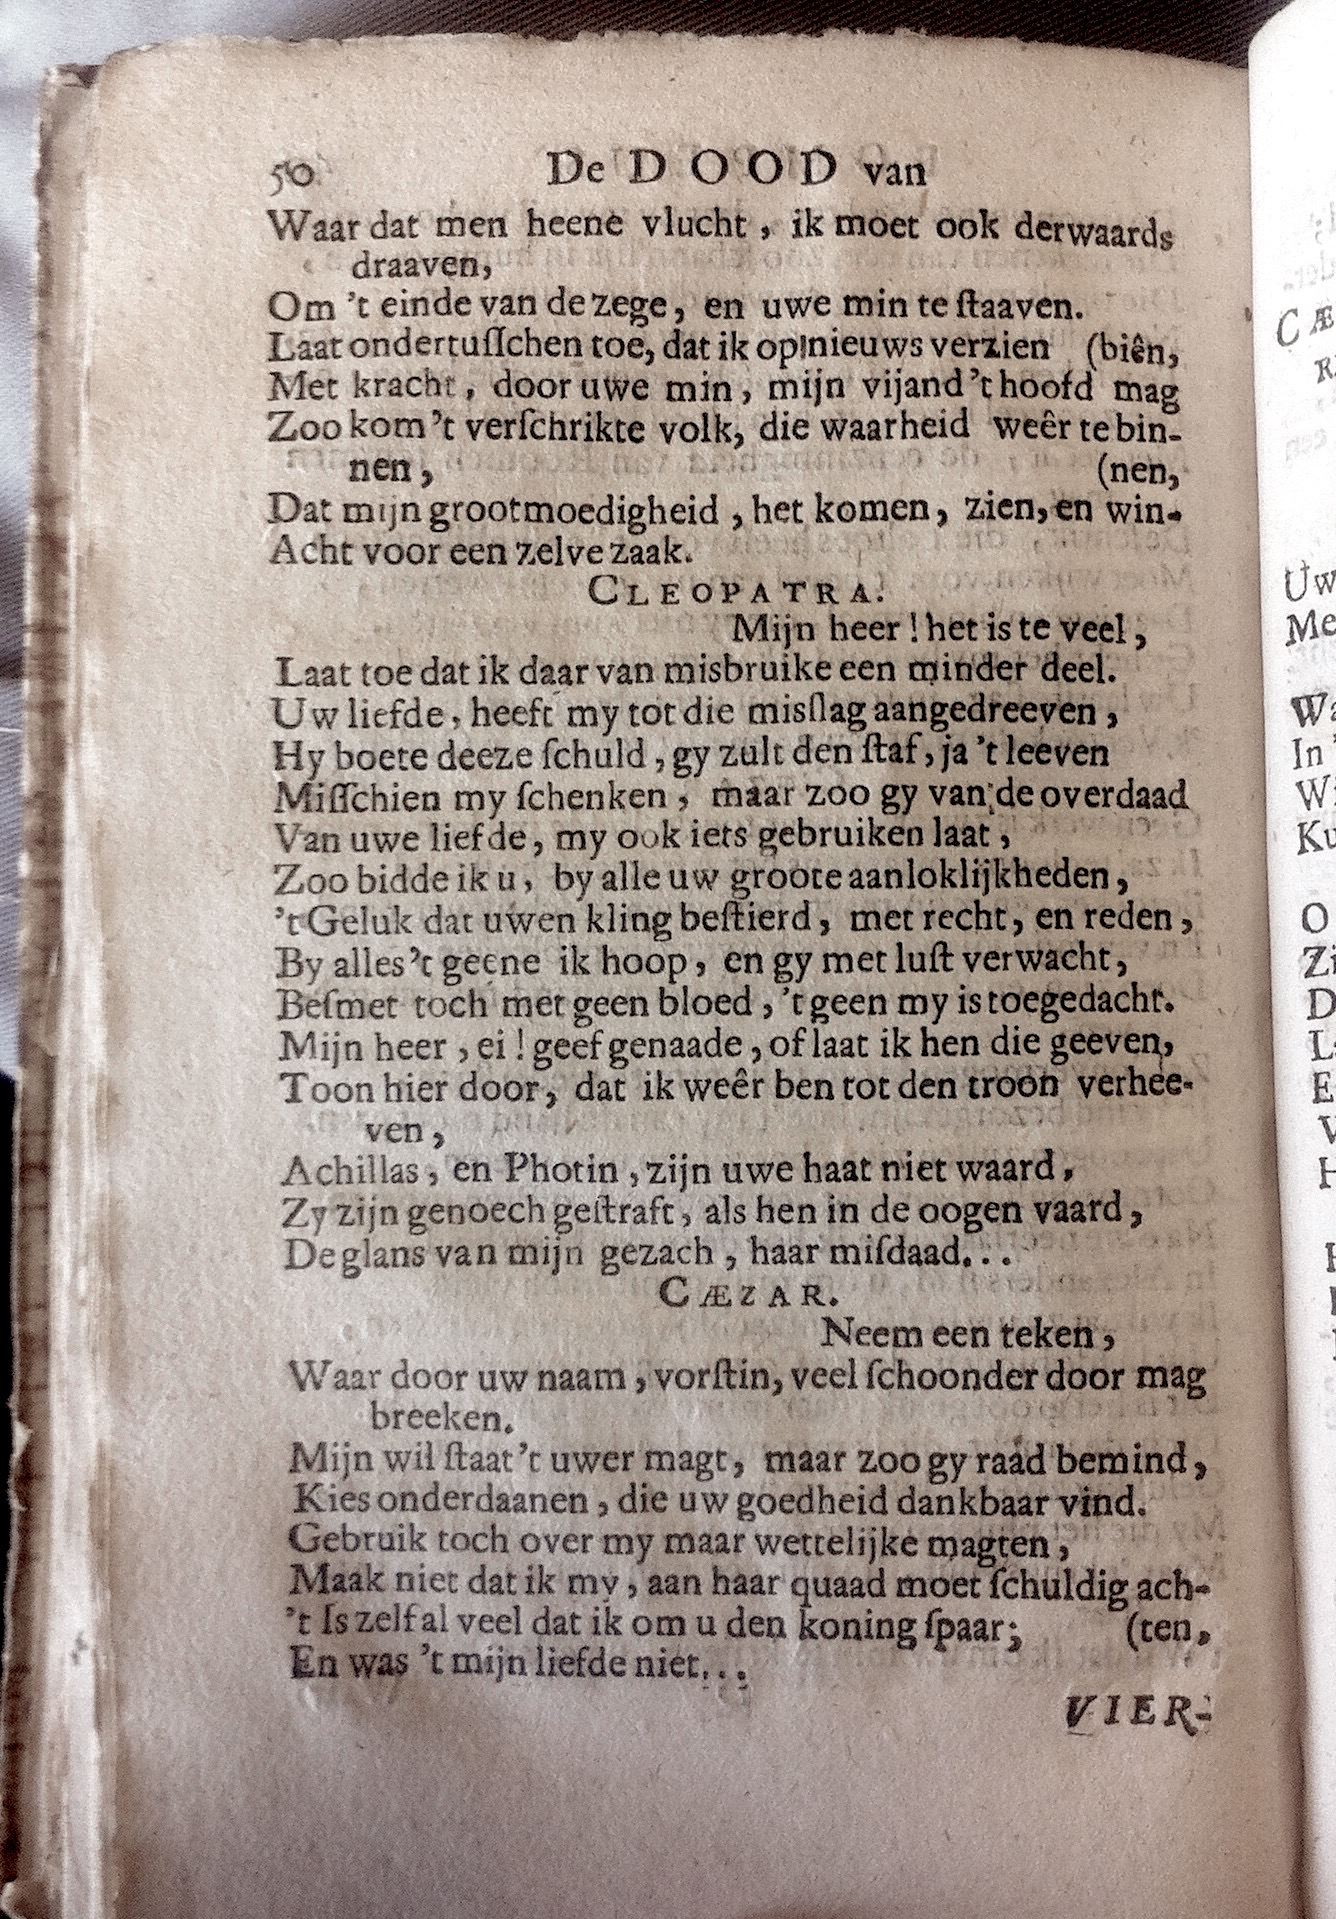 50 De DOOD van
Waar dat men heene vlucht, ik moet ook derwaards
draaven,
Om 't einde van de zege, en uwe min te ſtaaven.
Laat ondertuſſchen toe, dat ik op nieuws verzien (biên,
Met kracht, door uwe min, mijn vijand 't hoofd mag
Zoo kom 't verſchrikte volk, die waarheid weêr te bin-
nen, (nen,
Dat mijn grootmoedigheid, het komen, zien, en win-
Acht voor een zelve zaak.
CLEOPATRA.
Mijn heer! het is te veel,
Laat toe dat ik daar van misbruike een minder deel.
Uw liefde, heeft my tot die misſlag aangedreeven,
Hy boete deeze ſchuld, gy zult den ſtaf, ja 't leeven
Miſſchien my ſchenken, maar zoo gy van de overdaad
Van uwe liefde, my ook iets gebruiken laat,
Zoo bidde ik u, by alle uw groote aanloklijkheden,
't Geluk dat uwen kling beſtierd, met recht, en reden,
By alles 't geene ik hoop, en gy met luſt verwacht,
Beſmet toch met geen bloed, 't geen my is toegedacht.
Mijn heer, ei! geef genaade, of laat ik hen die geeven,
Toon hier door, dat ik weêr ben tot den troon verhee-
ven,
Achillas, en Photin, zijn uwe haat niet waard,
Zy zijn genoech geſtraft, als hen in de oogen vaard,
De glans van mijn gezach, haar miſdaad...
CÆZAR.
Neem een teken,
Waar door uw naam, vorſtin, veel ſchoonder door mag
breeken.
Mijn wil ſtaat 't uwer magt, maar zoo gy raad bemind,
Kies onderdaanen, die uw goedheid dankbaar vind.
Gebruik toch over my maar wettelijke magten,
Maak niet dat ik my, aan haar quaad moet ſchuldig ach-
't Is zelf al veel dat ik om u den koning ſpaar; (ten,
En was 't mijn liefde niet...
VIER-
CÆ
R
Uw
Me
Wa
In '
Wi
Ku
O
Zi
D
L
E
V
H